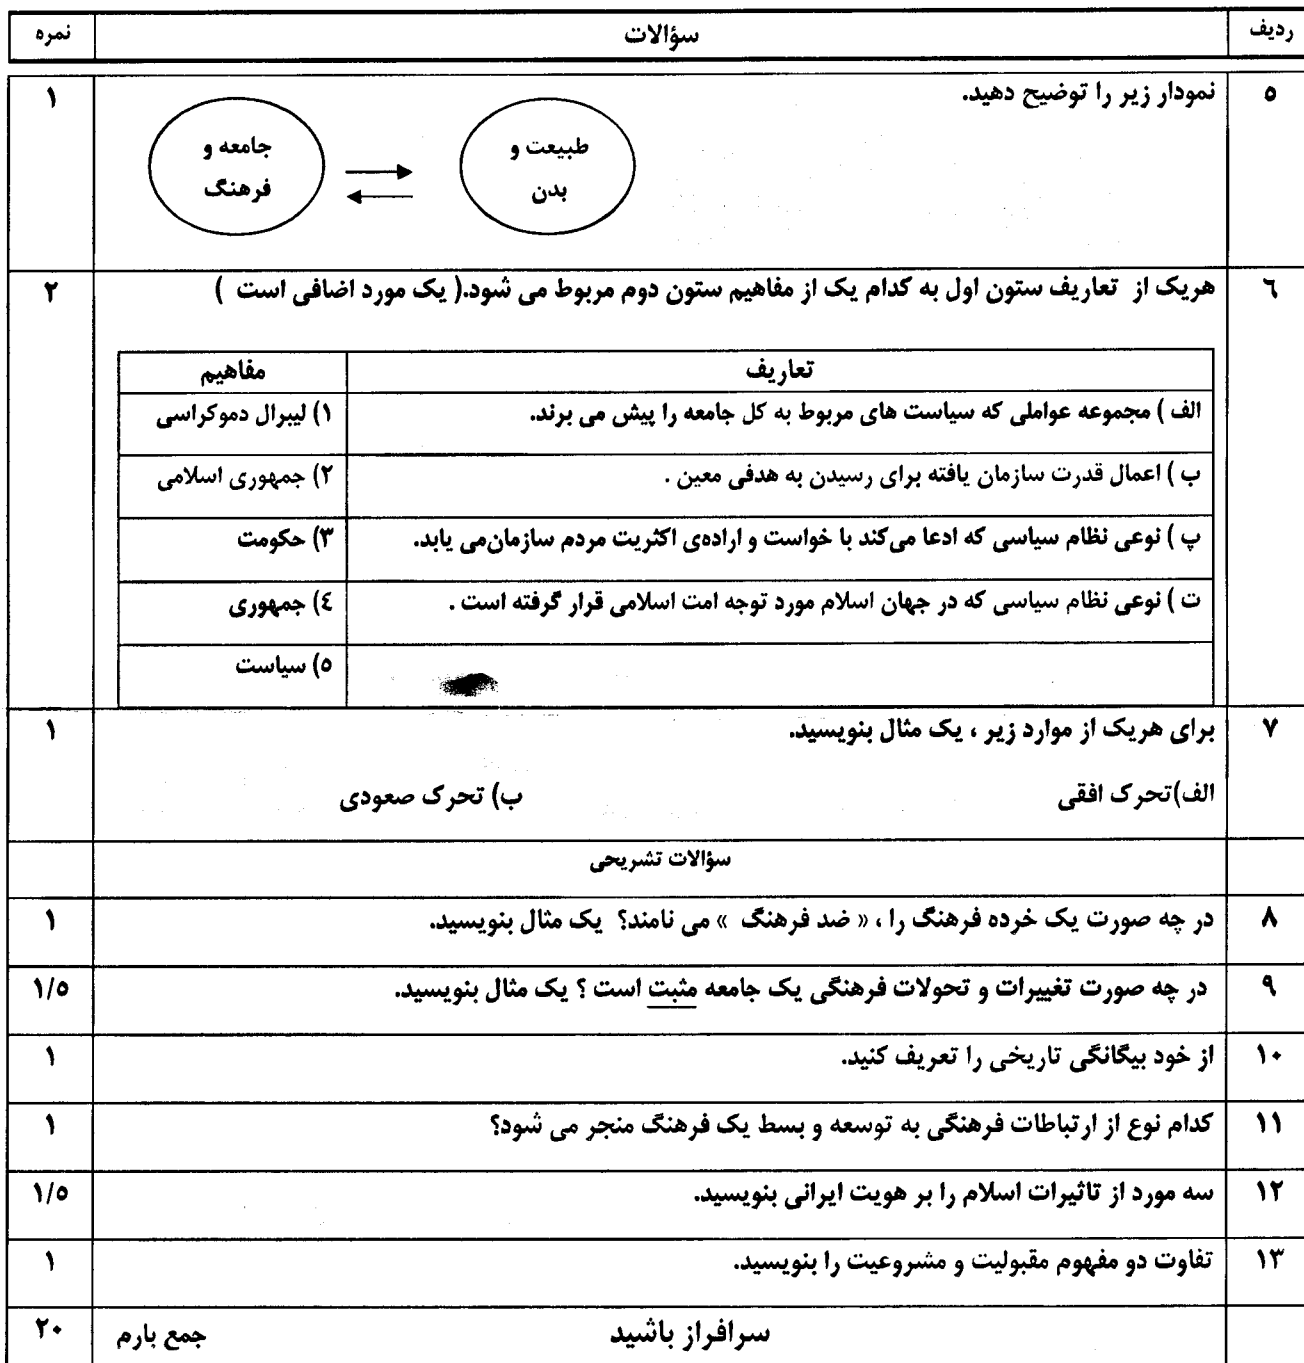 ردیف سؤالات نمره
٥ نمودار زیر را توضیح دهید. ١
طبیعت و
بدن
جامعه و
فرهنگ
٦ هریک از تعاریف ستون اول به کدام یک از مفاهیم ستون دوم مربوط می شود.( یک مورد اضافی است ) ٢
تعاریف مفاهیم
الف ) مجموعه عواملی که سیاست های مربوط به کل جامعه را پیش می برند. ١) لیبرال دموکراسی
ب ) اعمال قدرت سازمان یافته برای رسیدن به هدفی معین . ٢) جمهوری اسلامی
پ ) نوعی نظام سیاسی که ادعا می‌کند با خواست و اراده‌ی اکثریت مردم سازمان‌می یابد. ٣) حکومت
ت ) نوعی نظام سیاسی که در جهان اسلام مورد توجه امت اسلامی قرار گرفته است . ٤) جمهوری
٥) سیاست
٧ برای هریک از موارد زیر ، یک مثال بنویسید. ١
الف)تحرک افقی ب) تحرک صعودی
سؤالات تشریحی
٨ در چه صورت یک خرده فرهنگ را ، « ضد فرهنگ » می نامند؟ یک مثال بنویسید. ١
٩ در چه صورت تغییرات و تحولات فرهنگی یک جامعه مثبت است ؟ یک مثال بنویسید. ١/٥
١٠ از خود بیگانگی تاریخی را تعریف کنید. ١
١١ کدام نوع از ارتباطات فرهنگی به توسعه و بسط یک فرهنگ منجر می شود؟ ١
١٢ سه مورد از تاثیرات اسلام را بر هویت ایرانی بنویسید. ١/٥
١٣ تفاوت دو مفهوم مقبولیت و مشروعیت را بنویسید. ١
سرافراز باشید جمع بارم ٢٠